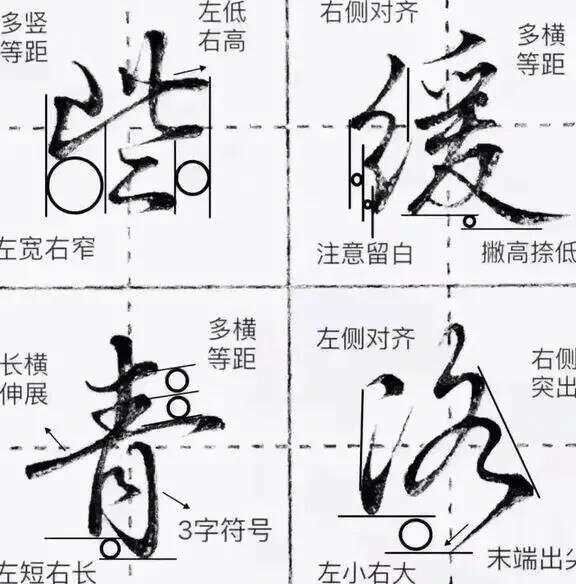 多竖
等距
左低
右高
些
左宽右窄
右侧对齐
多横
等距
缓
注意留白
撇高捺低
多横
等距
长横
伸展
青
3字符号
左短右长
左侧对齐
右侧
突出
洛
末端出尖
左小右大